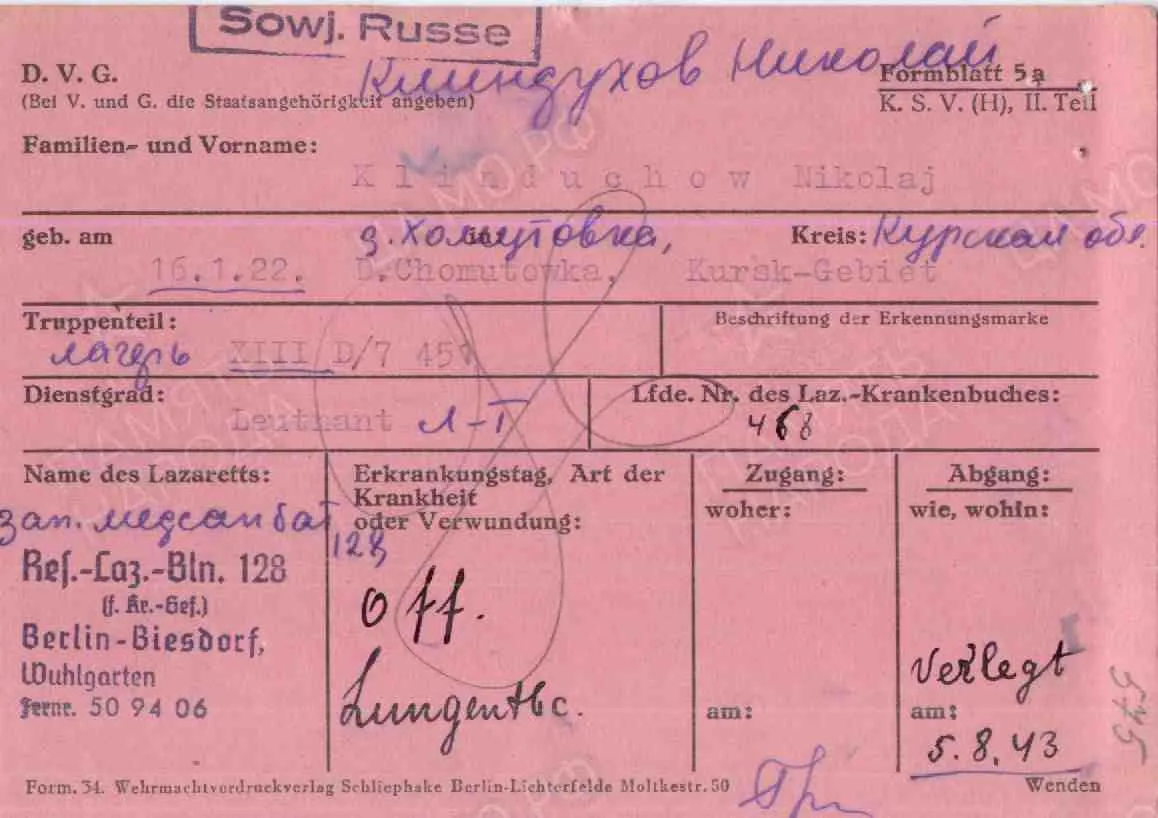 Sowj. Russe
Клиндухов Николай
D. V. G.
Formblatt 5a
(Bei V. und G. die Staatsangehörigkeit angeben)
K. S. V. (H), II. Teil
Familien- und Vorname:
Klinduchow Nikolaj
geb. am
д. Хомутовка,
Kreis: Курская обл.
16.1.22. D.Chomutowka, Kursk-Gebiet
Truppenteil:
Beschriftung der Erkennungsmarke
лагерь XIII D/7 451
Dienstgrad:
Lfde. Nr. des Laz.-Krankenbuches:
Leutnant Л-Т
468
Name des Lazaretts:
Erkrankungstag, Art der
Krankheit
oder Verwundung:
Zugang:
woher:
Abgang:
wie, wohin:
зап. медсанбат
128
Res.-Laz.-Bln. 128
(f. Kr.-Gef.)
Berlin-Biesdorf,
Wuhlgarten
Fernr. 50 94 06
Off.
Lungentbc.
verlegt
am:
am:
5.8.43
545
Form. 34. Wehrmachtvordruckverlag Schliephake Berlin-Lichterfelde Moltkestr. 50
Wenden
ПАМЯТЬ
НАРОДА
ЦАМО.РФ